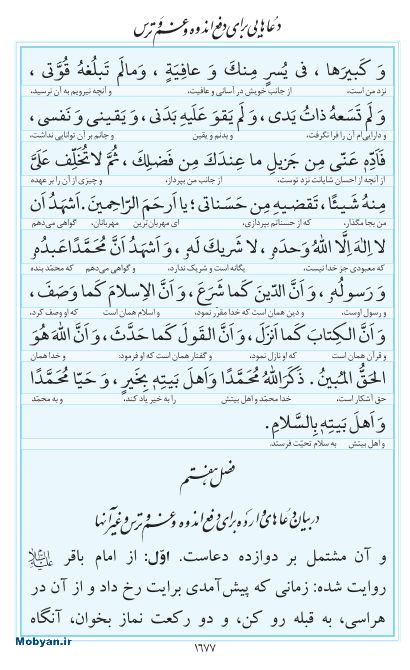 دعاهایی برای دفع اندوه و غم و ترس
وَ کَبیرَها ، فی یُسرٍ مِنکَ وَ عافِیَةٍ ، وَمالَم تَبلُغهُ قُوَّتی ،
نزد من است، از جانب خویش در آسانی و عافیت، و آنچه نیرویم به آن نرسید،
وَ لَم تَسَعهُ ذاتُ یَدی ، وَ لَم یَقوَ عَلَیهِ بَدَنی ، وَ یَقینی وَ نَفسی ،
و دارایی‌ام آن را فرا نگرفت، و بدنم و یقین و جانم بر آن توانایی نداشت،
فَأَدِّهِ عَنّی مِن جَزیلِ ما عِندَکَ مِن فَضلِکَ ، ثُمَّ لا تُخَلِّف عَلَیَّ
از آنچه از احسان شایانت نزد توست، از جانب من بپرداز، و چیزی از آن را بر عهده
مِنهُ شَیئًا ، تَقضیهِ مِن حَسَناتی ؛ یا اَرحَمَ الرّاحِمینَ . اَشهَدُ اَن
من بجا مگذار، که از حسناتم بپردازی، ای مهربان‌ترین مهربانان، گواهی می‌دهم
لا اِلهَ اِلَّا اللهُ وَحدَهُ ، لا شَریکَ لَهُ ، وَ اَشهَدُ اَنَّ مُحَمَّدًا عَبدُهُ
که معبودی جز خدا نیست، یگانه است و شریک ندارد، و گواهی می‌دهم که محمّد بنده
وَ رَسولُهُ ، وَ اَنَّ الدّینَ کَما شَرَعَ ، وَ اَنَّ الاِسلامَ کَما وَصَفَ ،
و رسول اوست، و دین همان است که خدا مقرّر نمود، و اسلام همان است که او وصف کرد،
وَ اَنَّ الکِتابَ کَما اَنزَلَ ، وَ اَنَّ القَولَ کَما حَدَّثَ ، وَ اَنَّ اللهَ هُوَ
و قرآن همان است که او نازل نمود، و گفتار همان است که او فرمود؛ و خدا همان
الحَقُّ المُبینُ . ذَکَرَ اللهُ مُحَمَّدًا وَ اَهلَ بَیتِهِ بِخَیرٍ ، وَ حَیّا مُحَمَّدًا
حق آشکار است، خدا محمّد و اهل بیتش را به خیر یاد کند، و به محمّد
وَ اَهلَ بَیتِهِ بِالسَّلامِ .
و اهل بیتش به سلام تحیّت فرستد.
فصل هفتم
در بیان دعاهای وارده برای دفع اندوه و غم و ترس و غیر آنها
و آن مشتمل بر دوازده دعاست. اوّل: از امام باقر علیه‌السلام
روایت شده: زمانی که پیش‌آمدی برایت رخ داد و از آن در
هراسی، به قبله رو کن، و دو رکعت نماز بخوان، آنگاه
Mobyan.ir
۱۶۷۷